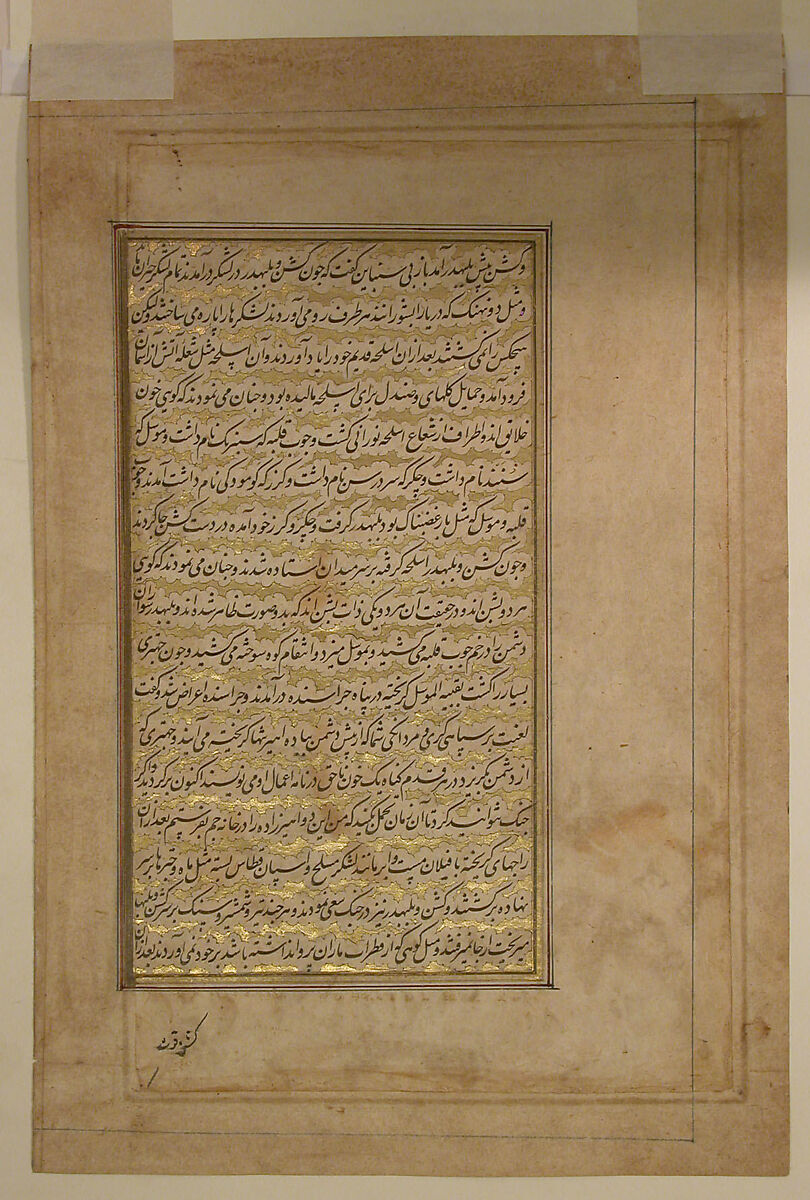 وکشن پیش بلبهدر آمد باز بی سنباین گفت که چون کشن و بلبهدر در لشکر درآمدند تمام لشکر حیران ماند
و مثل دو نهنک که دریا را بشورانند هر طرف رو می آوردند لشکرها را پاره می ساختند ولیکن
هیچکس را نمی کشتند بعد از ان اسلحه قدیم خود را یاد آوردند و آن اسلحه مثل شعله آتش از آسمان
فرود آمد و حمایل کلهای و صندل برای اسلحه مالیده بود و چنان می نمودند که کویی خون
خلایق اند و اطراف از شعاع اسلحه نورانی کشت و چوب قلبه که سنبرتک نام داشت و موسل که
سنند نام داشت و چکر که سدرسن نام داشت و کرز که کومودکی نام داشت آمدند و چوب
قلبه و موسل که مثل مار غضبناک بود بلبهدر کرفت و چکر و کرز خود آمده در دست کشن جا کردند
و چون کشن و بلبهدر اسلحه کرفته بر سر میدان استاده شدند و چنان می نمودند که کویی
هر دو بشن اند و در حقیقت آن هر دو یکی ذات بشن اند که بدو صورت ظاهر شده اند و بلبهدر سواران
دشمن را در خم چوب قلبه می کشید و بموسل میزد و انتقام کوه سوخته می کشید و چون چهتری
بسیار را کشت بقیه الموسل کریخته در پناه جراسنده درآمدند و جراسنده اعراض شد و کفت
لعنت بر سپاهی کری و مردانکی شما که از پیش دشمن پیاده اسپ شما کریخته می آیند و چهتری که
از دشمن بکریزد در هر قدم کناه یک خون ناحق در نامه اعمال او می نویسند اکنون برکردید و اکر
جنک نتوانید کرد تا آن زمان تحمل بکنید که من این دو اهیرزاده را در خانه جم بفرستم بعد از ان
راجهای کریخته با فیلان مست و ابر مانند لشکر مسلح و اسپان قطاس بسته مثل ماه و چترها بر سر
نهاده برکشتند و کشن و بلبهدر نیز در جنک سعی نمودند و هر چند تیر و شمشیر و سنک بر سر کشن و بلبهدر
میریخت از جا نمیرفتند و مثل کوهی که از قطرات باران پروا نداشته باشد بر خود نمی آوردند بعد از ان